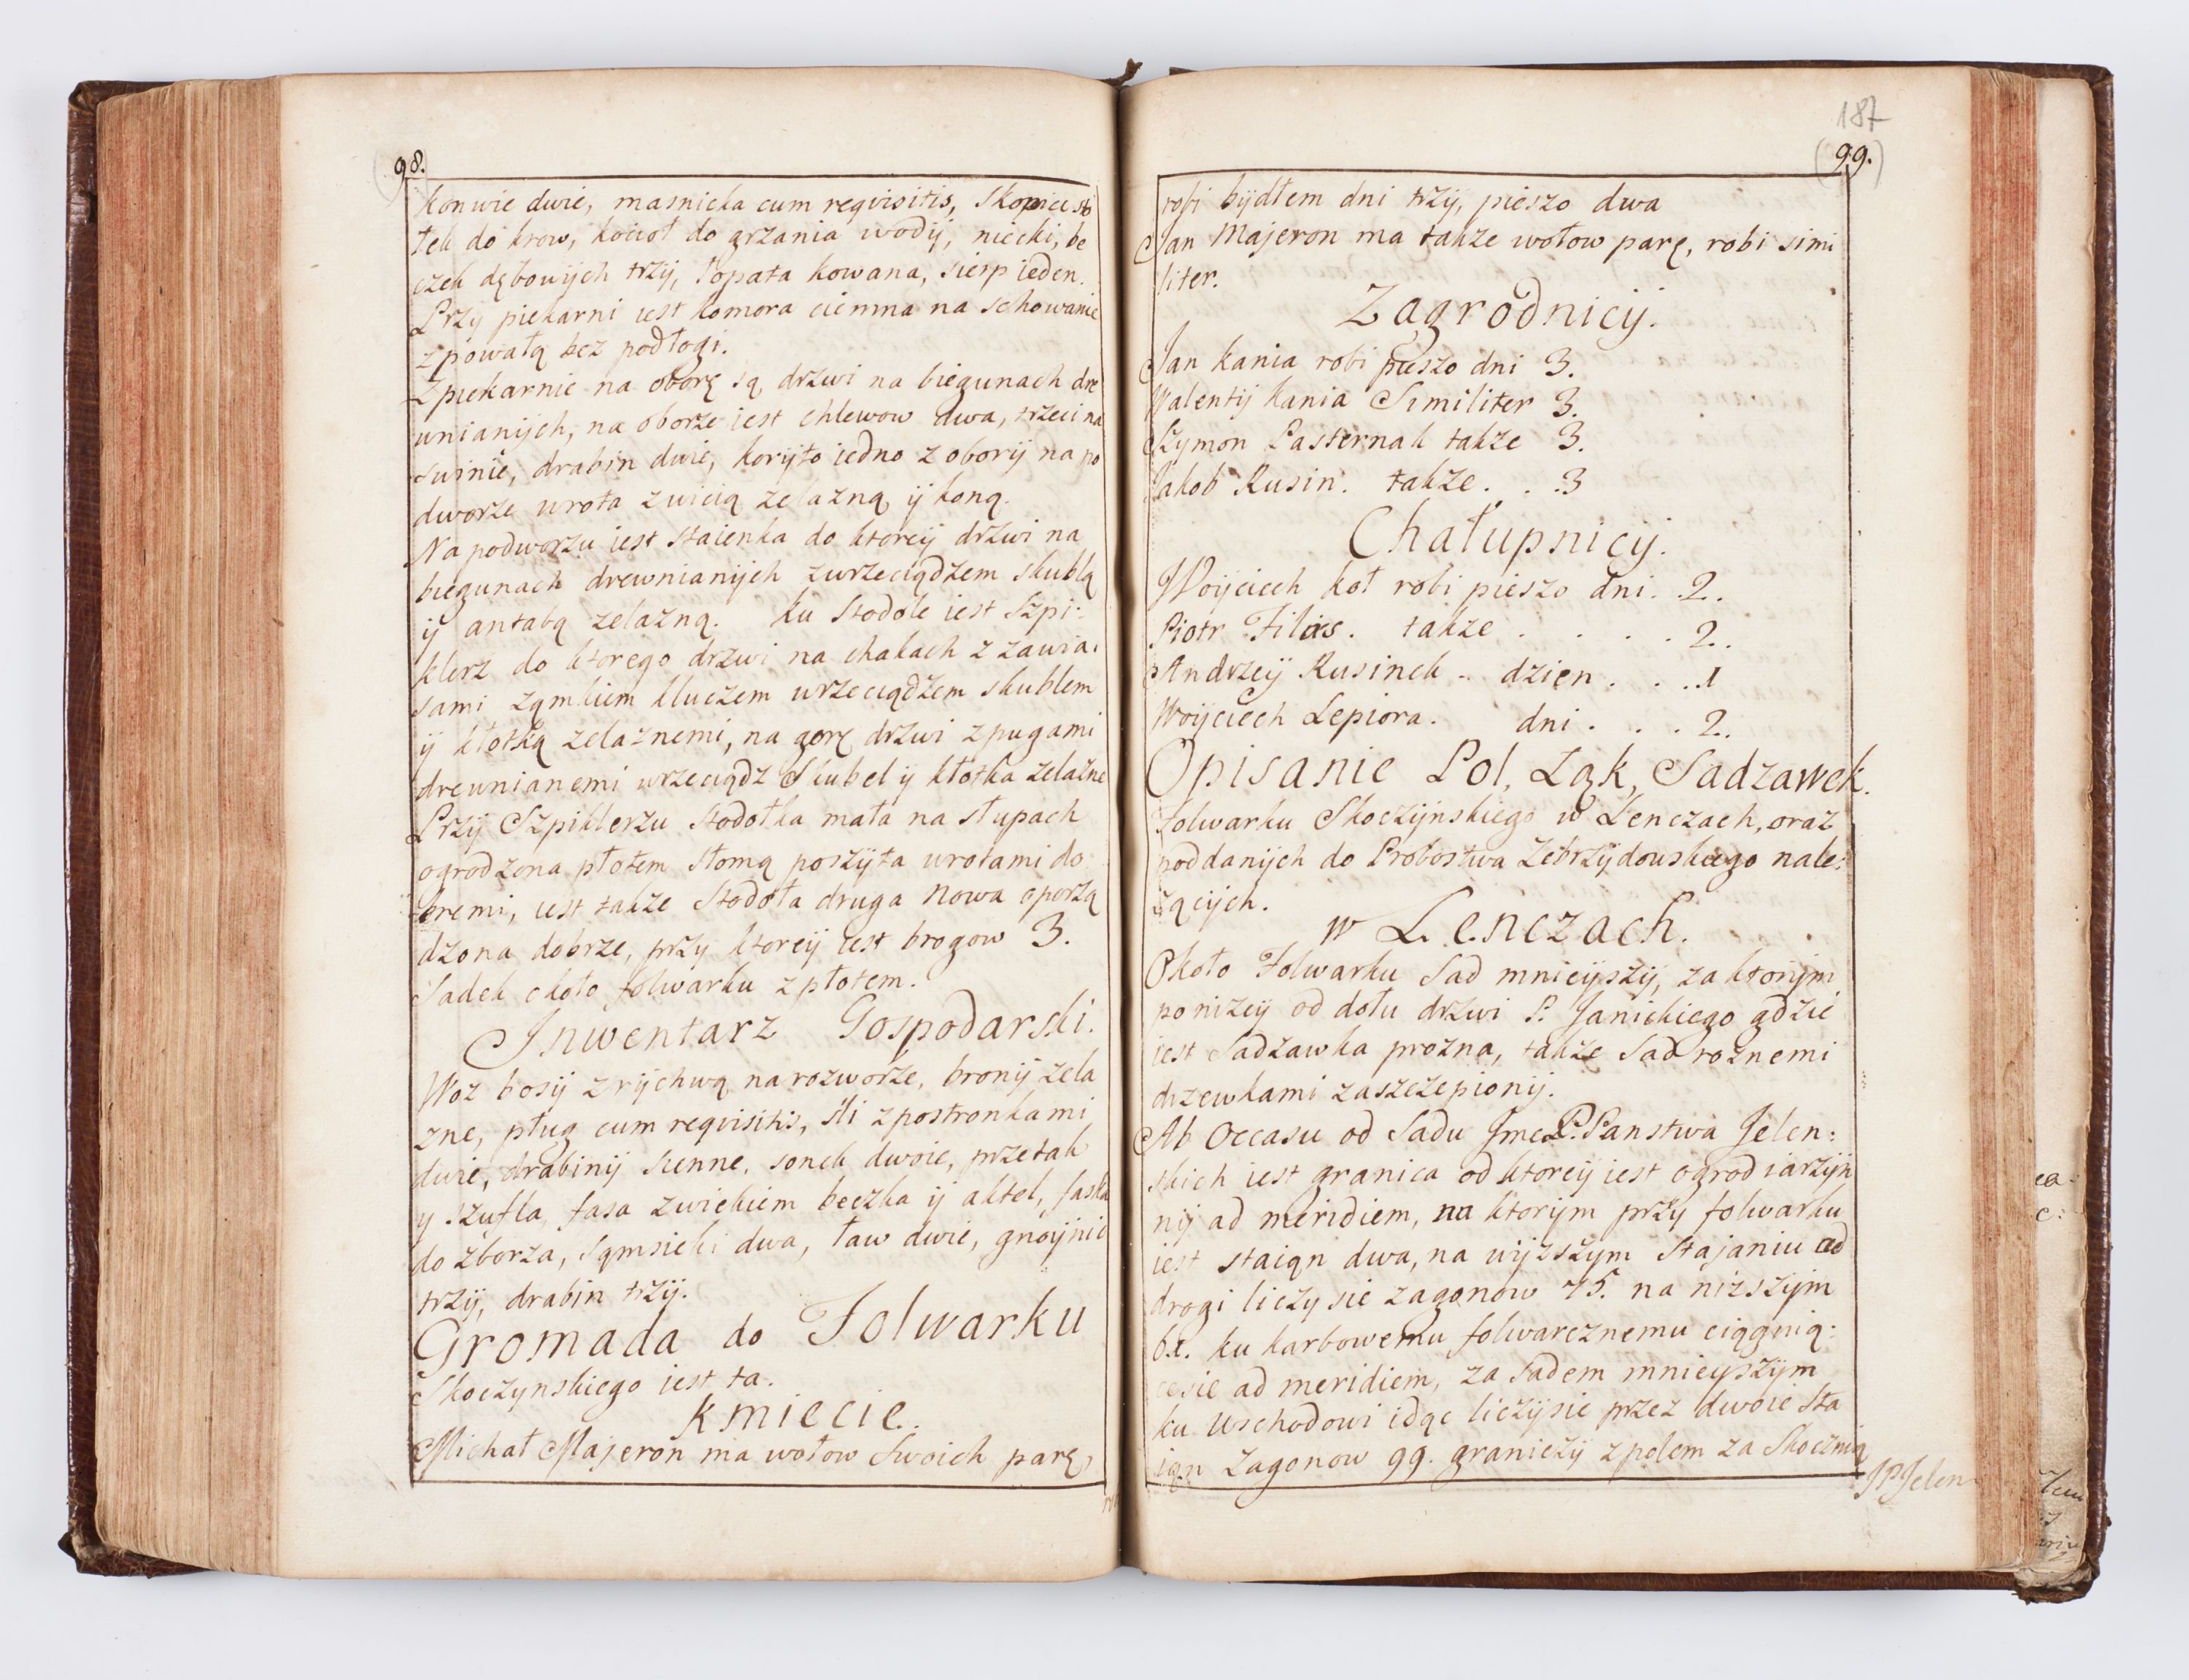 98.
konwie dwie, masnicka cum reqvisitis, skopiec sto
łek do krow, kocioł do grzania wodÿ, niecki, be
czek dębowÿch trzÿ, łopata kowana, sierp ieden.
Przÿ piekarni iest komora ciemna na schowanie
z powałą bez podłogi.
Z piekarnie na oborę są drzwi na biegunach dre
wnianÿch, na oborze iest chlewow dwa, trzeci na
swinie, drabin dwie, korÿto iedno z oborÿ na po
dworze wrota z wicią zelazną ÿ koną.
Na podworzu iest staienka do ktoreÿ drzwi na
biegunach drewnianÿch z wrzeciądzem skublą
ÿ antabą zelazną. ku Stodole iest Szpi:
klerz do ktorego drzwi na chakach z zawia.
sami ząmkiem kluczem wrzeciądzem skublem
ÿ kłotką zelaznemi, na gorę drzwi z pugami
drewnianemi wrzeciądz Skubel ÿ kłotka zelazne
Przÿ Szpiklerzu Stodołka mała na słupach
ogrodzona płotem słomą poszÿta wrotami do
bremi, iest takze Stodoła druga nowa oporzą
dzona dobrze, przy ktoreÿ iest brogow 3.
Sadek około folwarku z płotem.
Inwentarz Gospodarski.
Woz bosÿ z rÿchwą na rozworze, bronÿ zela
zne, pług cum reqvisitis, sli z postronkami
dwie, drabinÿ sienne, sonek dwoie, przetak
y szufla, fasa z wiekiem beczka ÿ aktel, faska
do zborza, sąmsieki dwa, ław dwie, gnoÿnic
trzÿ, drabin trzÿ.
Gromada do Folwarku
Skoczynskiego iest ta.
Kmiecie.
Michał Majeron ma wołow swoich parę,
187
99.
robi bÿdłem dni trzÿ, pieszo dwa
Jan Majeron ma takze wołow parę, robi simi
liter.
Zagrodnicÿ.
Jan Kania robi pieszo dni 3.
Walentÿ Kania Similiter 3.
Szymon Pasternak takze 3.
Jakob Rusin. takze . . .3
Chałupnicÿ.
Woÿciech Kot robi pieszo dni. .2.
Piotr Filas. takze . . . . 2.
Andrzeÿ Rusinek - dzien . . ..1
Woÿciech Lepiora. dni . . . 2.
Opisanie Pol, Ląk, Sadzawek.
folwarku Skoczÿnskiego w Lenczach, oraz
poddanÿch do Probostwa Zebrzÿdowskiego nale:
zącÿch.
w Lenczach.
Około Folwarku Sad mnieÿszÿ, za ktorÿm
ponizeÿ od dołu drzwi P. Janickiego gdzie
iest Sadzawka prozna, takze Sad roznemi
drzewkami zaszczepionÿ.
Ab Occasu od Sadu Jmci P. Panstwa Jelen:
skich iest granica od ktoreÿ iest ogrod iarzÿn
nÿ ad meridiem, na ktorÿm przÿ folwarku
iest staiąn dwa, na wÿzszym Stajaniu od
drogi liczy sie zagonow 75. na nizszÿm
ku karbowemu folwarcznemu ciągnią:
cesie ad meridiem, za Sadem mnieyszÿm
ku wschodowi idąc liczÿ sie przez dwoie sta
iąn zagonow 99. graniczÿ z polem za Skocznią
JPJelen